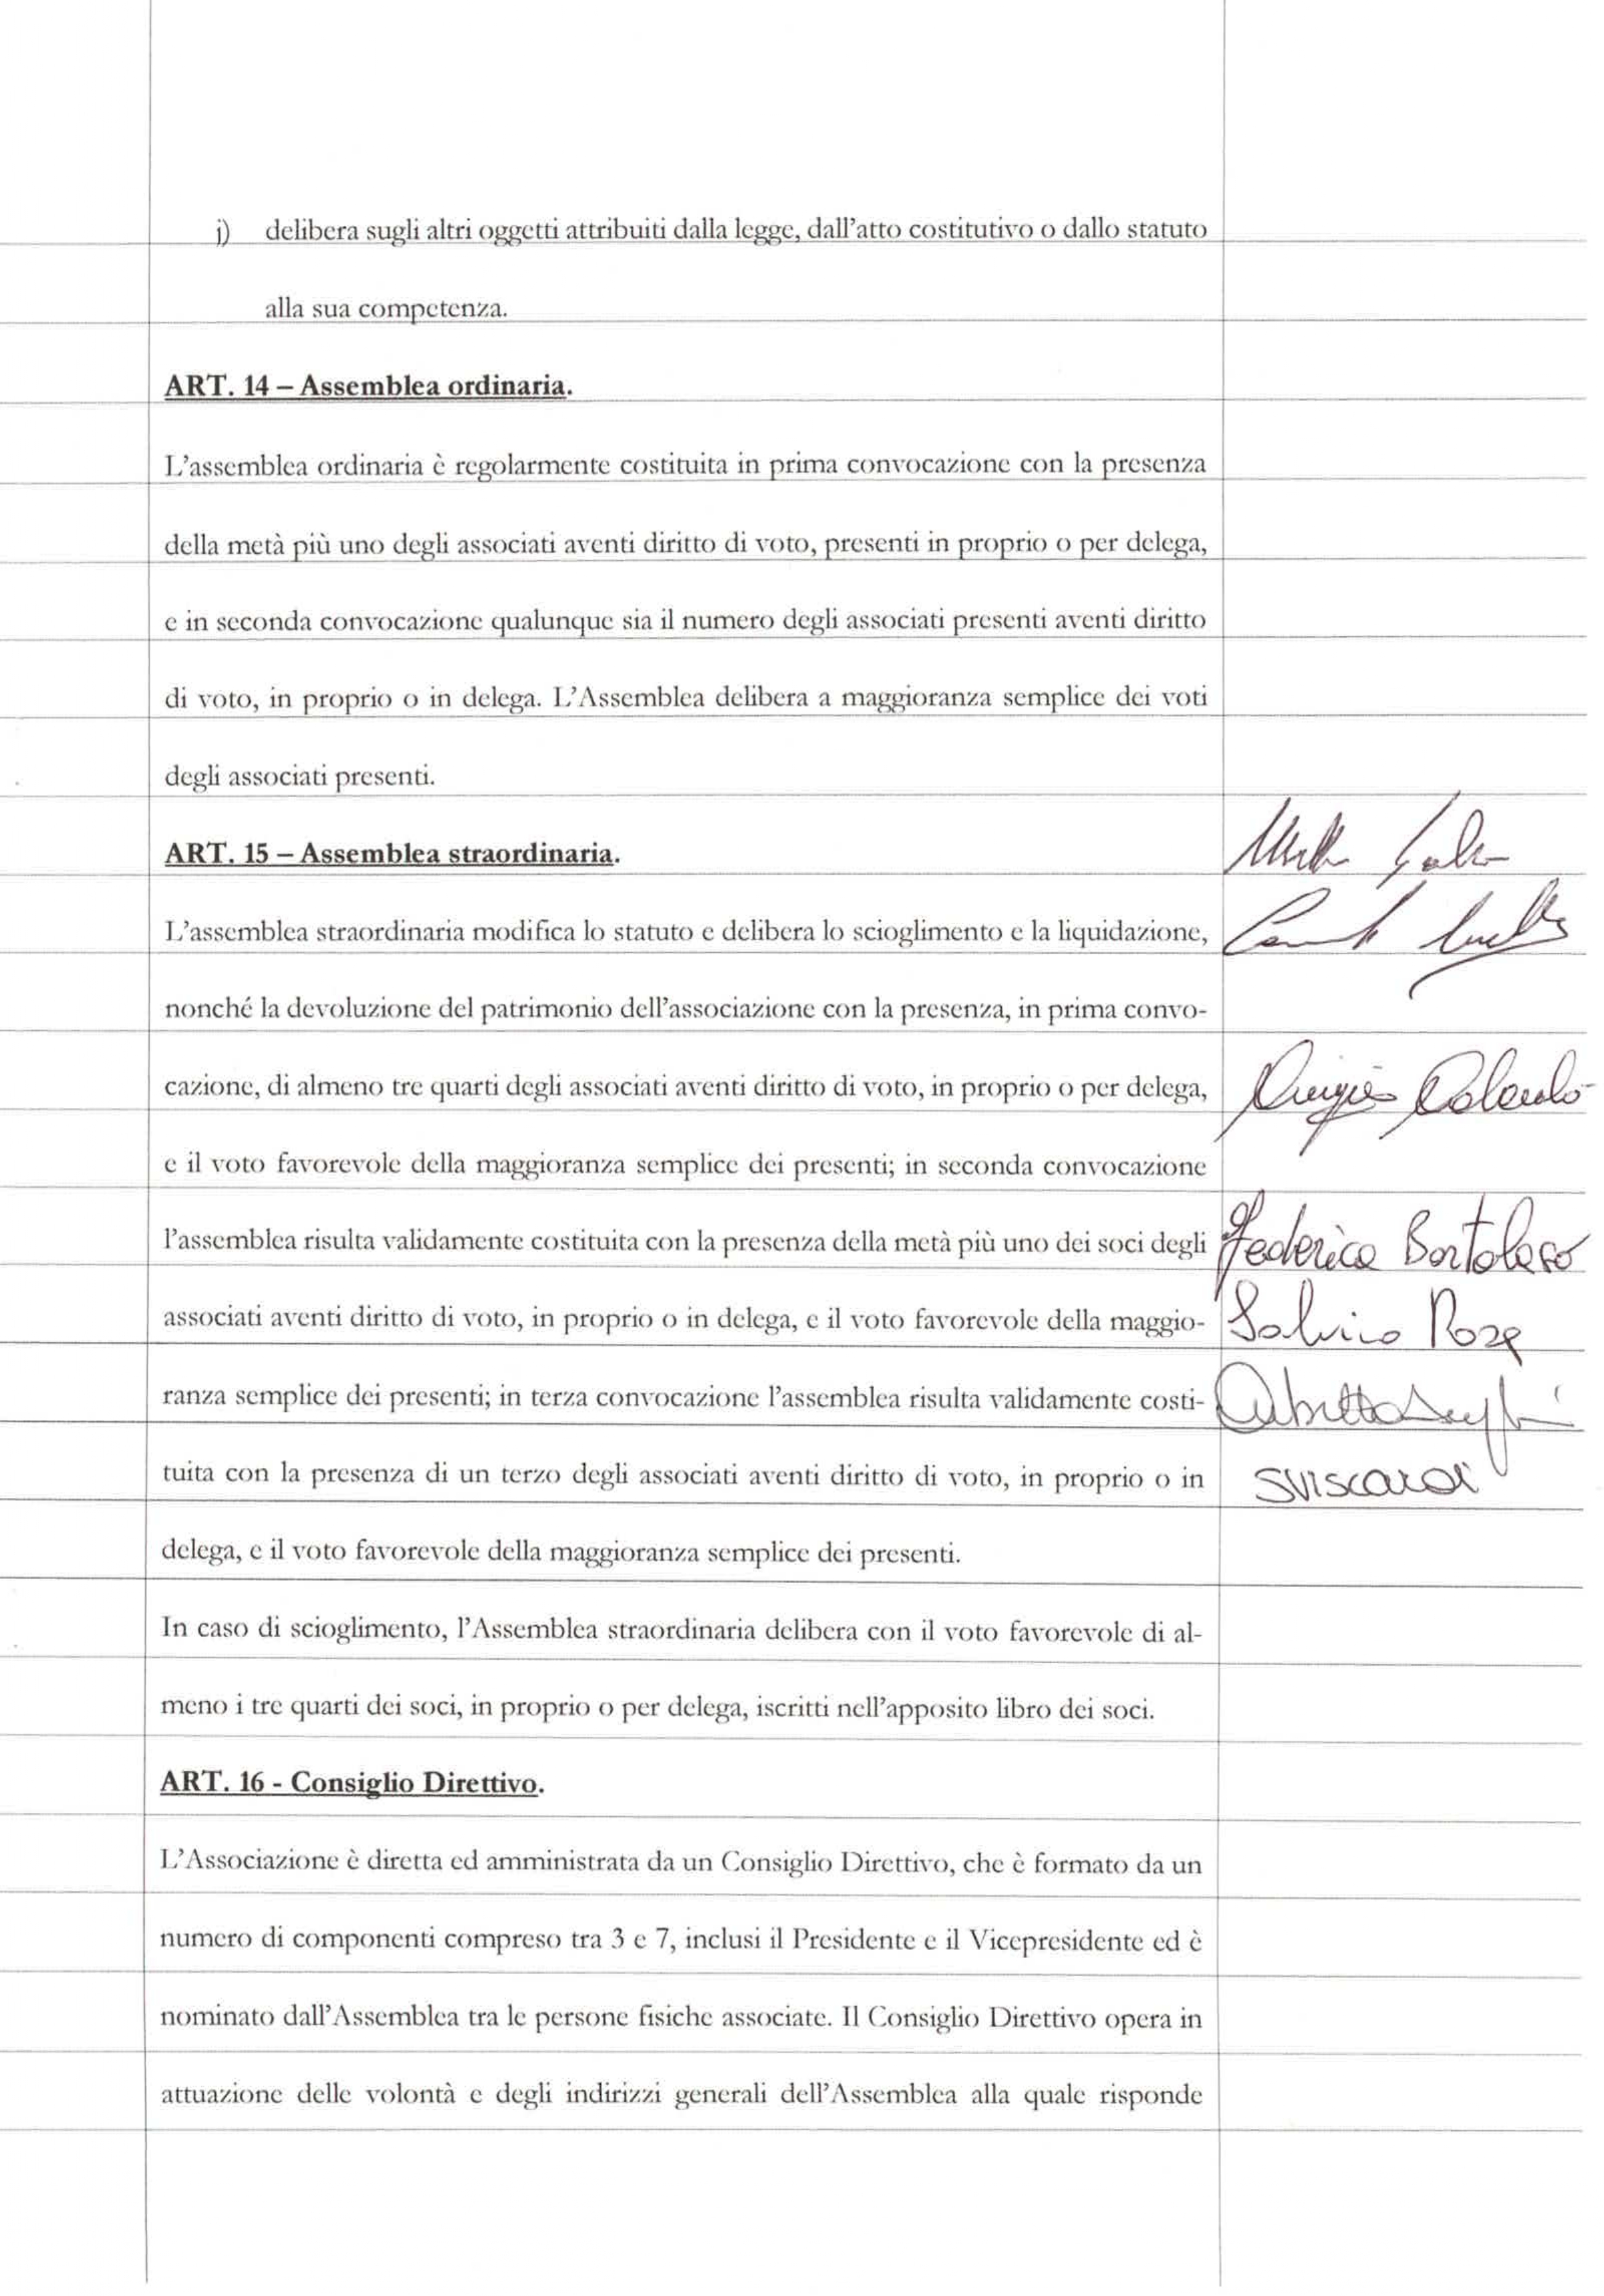 j) delibera sugli altri oggetti attribuiti dalla legge, dall'atto costitutivo o dallo statuto
alla sua competenza.
ART. 14 – Assemblea ordinaria.
L'assemblea ordinaria è regolarmente costituita in prima convocazione con la presenza
della metà più uno degli associati aventi diritto di voto, presenti in proprio o per delega,
e in seconda convocazione qualunque sia il numero degli associati presenti aventi diritto
di voto, in proprio o in delega. L'Assemblea delibera a maggioranza semplice dei voti
degli associati presenti.
ART. 15 – Assemblea straordinaria.
L'assemblea straordinaria modifica lo statuto e delibera lo scioglimento e la liquidazione,
nonché la devoluzione del patrimonio dell'associazione con la presenza, in prima convo-
cazione, di almeno tre quarti degli associati aventi diritto di voto, in proprio o per delega,
e il voto favorevole della maggioranza semplice dei presenti; in seconda convocazione
l'assemblea risulta validamente costituita con la presenza della metà più uno dei soci degli
Federica Bortolaso
associati aventi diritto di voto, in proprio o in delega, e il voto favorevole della maggio-
ranza semplice dei presenti; in terza convocazione l'assemblea risulta validamente costi-
tuita con la presenza di un terzo degli associati aventi diritto di voto, in proprio o in
sviscardi
delega, e il voto favorevole della maggioranza semplice dei presenti.
In caso di scioglimento, l'Assemblea straordinaria delibera con il voto favorevole di al-
meno i tre quarti dei soci, in proprio o per delega, iscritti nell'apposito libro dei soci.
ART. 16 - Consiglio Direttivo.
L'Associazione è diretta ed amministrata da un Consiglio Direttivo, che è formato da un
numero di componenti compreso tra 3 e 7, inclusi il Presidente e il Vicepresidente ed è
nominato dall'Assemblea tra le persone fisiche associate. Il Consiglio Direttivo opera in
attuazione delle volontà e degli indirizzi generali dell'Assemblea alla quale risponde